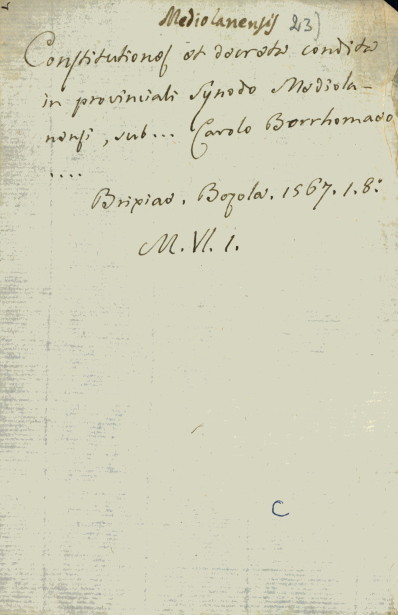 Mediolanensis 23)
Constitutiones et decreta condita
in provinciali Synodo Mediola-
nensi, sub... Carolo Borrhomaeo
....
Brixiae. Bozola. 1567. 1. 8.º
M. VI. 1.
C